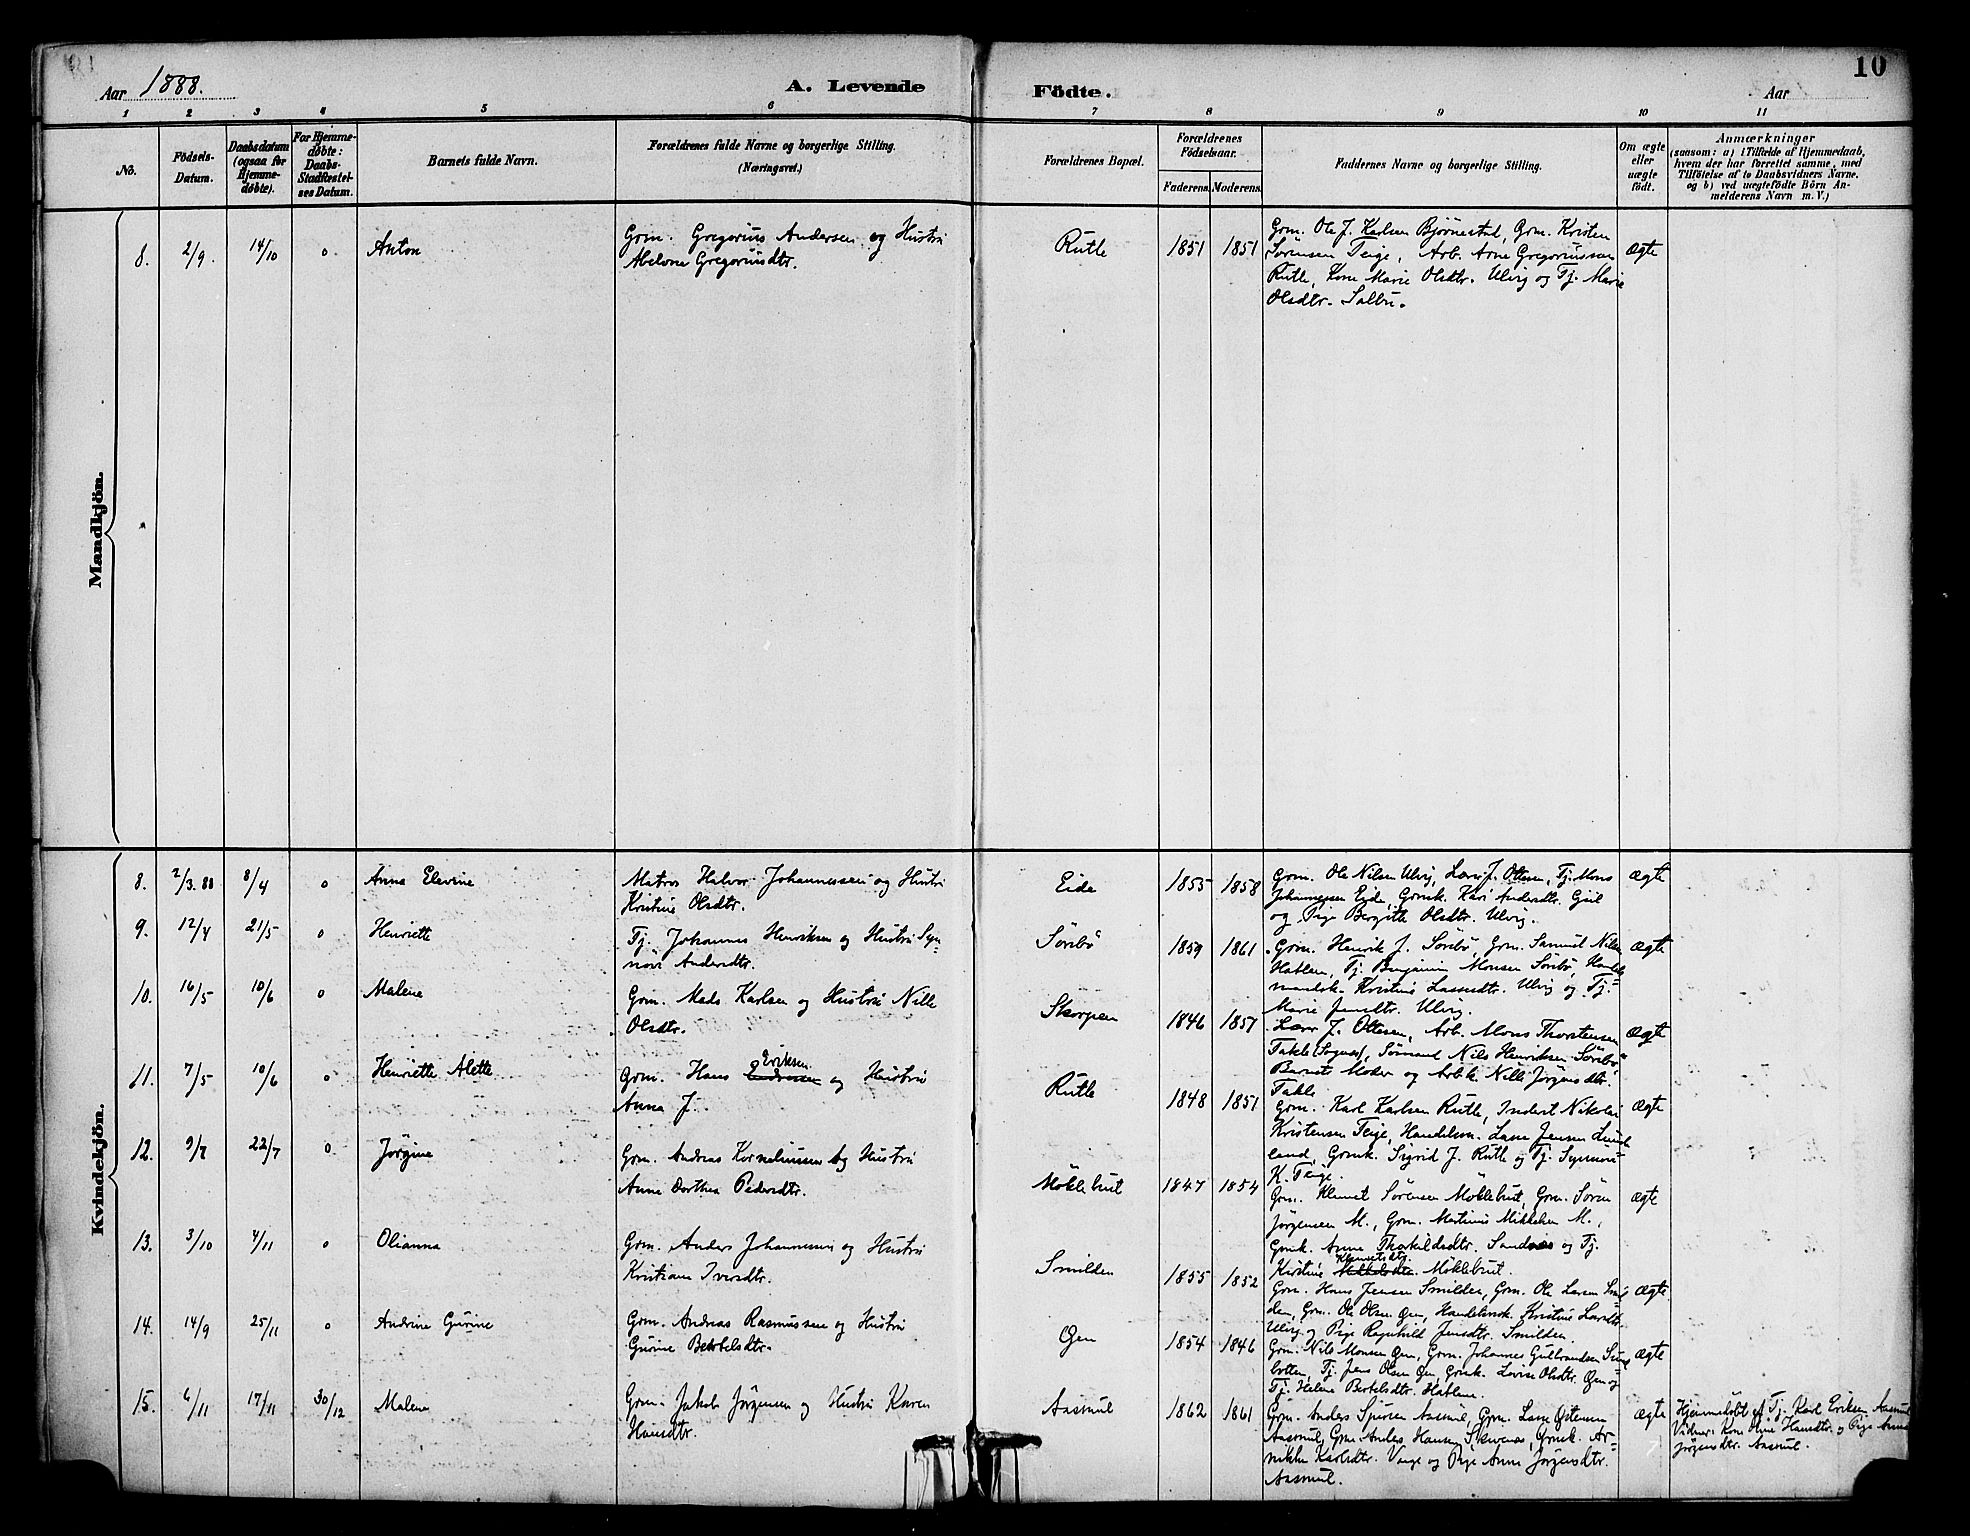 10
Aar 1888.
A. Levende Födte.
Aar
1 2 3 4 5 6 7 8 9 10 11
No.
Födsels-Datum.
Daabsdatum (ogsaa for Hjemmedøbte).
For Hjemmedøbte: Daabs-Stadfæstelses Datum.
Barnets fulde Navn.
Forældrenes fulde Navne og borgerlige Stilling.
(Næringsvei.)
Forældrenes Bopæl.
Forældrenes Födselsaar.
Faderens. Moderens.
Faddernes Navne og borgerlige Stilling.
Om ægte eller uægte født.
Anmærkninger
(saasom: a) i Tilfælde af Hjemmedaab,
hvem der har forrettet samme, med
Tilføielse af to Daabsvidners Navne.
og b) ved uægtefödte Börn An-
melderens Navn m. V.)
Mandkjön.
8. 2/9. 14/10 0. Anton
Grm. Gregorius Andersen og Hustru
Abelone Gregoriusdtr.
Rutle 1851 1851
Grm. Ole J. Karlsen Bjørnestal, Grm. Kristen
Sørensen Teige, Arb. Arne Gregoriussen
Rutle, Kone Marie Olsdtr. Ulvig og Tj. Marie
Olsdtr. Salbu.
ægte
Kvindekjön.
8. 2/3. 88 8/4 0 Anna Elevine
Matros Halvor Johannessen og Hustru
Kristine Olsdtr.
Eide 1855 1858
Grm. Ole Nilsen Ulvig, Lærer J. Ottesen, Tj. Mons
Johannessen Eide, Grmk. Kari Andersdtr.
og Pige Bergitte Olsdtr. Ulvig.
ægte
9. 12/4 21/5 0 Henriette
Tj. Johannes Henriksen og Hustru Syn-
növe Andersdtr.
Sörebö 1859 1861
Grm. Henrik J. Sörebö, Grm. Samuel Nilsen
Hatlem, Tj. Benjamin Monsen Sörebö, Handels
mandsk. Kristine Lassesdtr. Ulvig og Tj.
Marie Jensdtr. Ulvig.
ægte
10. 16/5 10/6 0 Malene
Grm. Mads Karlsen og Hustru Nille
Olsdtr.
Skorpen 1846 1857
Lærer J. Ottesen, Arb. Mons Thorstensen
Takle (Sognes), Sømand Nils Henriksen Sörebö
Barnets Moder og Arbk. Nille Jørgensdtr.
Takle
ægte
11. 7/5 10/6 0 Henriette Alette
Eriksen
Grm. Hans Endresen og Hustru
Anna J.
Rutle 1848 1851
Grm. Karl Karlsen Rutle, Inderst Nikolai
Kristensen Teige, Handelsm. Lasse Jensen
land, Grmk. Sigrid J. Rutle og Tj. Synnöve
K. Teige.
ægte
12. 9/7 22/7 0 Jørgine
Grm. Andreas Korneliussen og Hustru
Anne Dorthea Pedersdtr.
Möklebust 1847 1854
Grm. Klemet Sørensen Möklebust, Grm. Sören
Jørgensen M., Grm. Martinus Mikkelsen M.,
Grmk. Anne Thorkildsdtr. Sandnæs og Tj.
Klemetsdtr.
Kirstine Mikkelsdtr. Möklebust.
ægte
13. 3/10 4/11 0 Olianna
Grm. Anders Johannessen og Hustru
Kristiane Iversdtr.
Smilden 1855 1852
Grm. Hans Jensen Smilden, Grm. Ole Larsen Smil
den, Grm. Ole Olsen Øen, Handelsmsk. Kristine Lassedtr.
Ulvig og Pige Ragnhild Jensdtr. Smilden.
ægte.
14. 14/9 25/11 0 Andrine Gurine
Grm. Andreas Rasmussen og Hustru
Gurine Bertelsdtr.
Øen 1854 1846
Grm. Nils Monsen Øen, Grm. Johannes Gulbrandsen
botten, Tj. Jens Olsen Øen, Grmk. Lovise Olsdtr. Øen og
Tj. Helene Bertelsdtr. Hatlem.
ægte
15. 6/11 17/11 30/12 Malene
Grm. Jakob Jørgensen og Hustru Karen
Hansdtr.
Aasmul 1862 1861
Grm. Anders Aasmul, Grm. Lasse Ostensen
Aasmul, Grm. Anders Hansen Skivenes, Grmk. An-
nikken Karlsdtr. Vaage og Pige Anne Jørgensdtr.
Aasmul.
ægte
Hjemmedöbt af Tj. Karl Eriksen Aasmul
Vidner: Kone Hansdtr. og Pige Anne
Jørgensdtr. Aasmul.